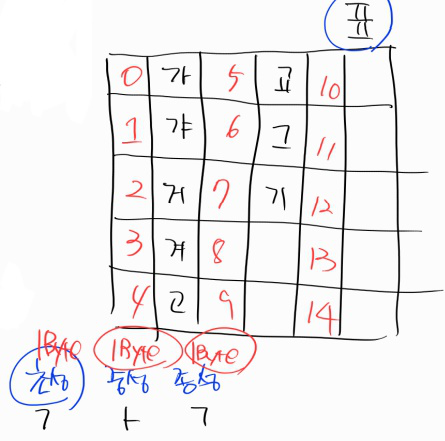 표
0 가 5 교 10
1 갸 6 그 11
2 거 7 기 12
3 겨 8 13
4 고 9 14
1Byte 1Byte 1Byte
초성 중성 종성
ㄱ ㅏ ㄱ